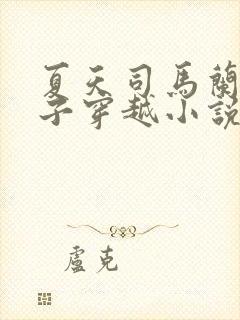 夏天司馬蘭
子穿越小說
盧克